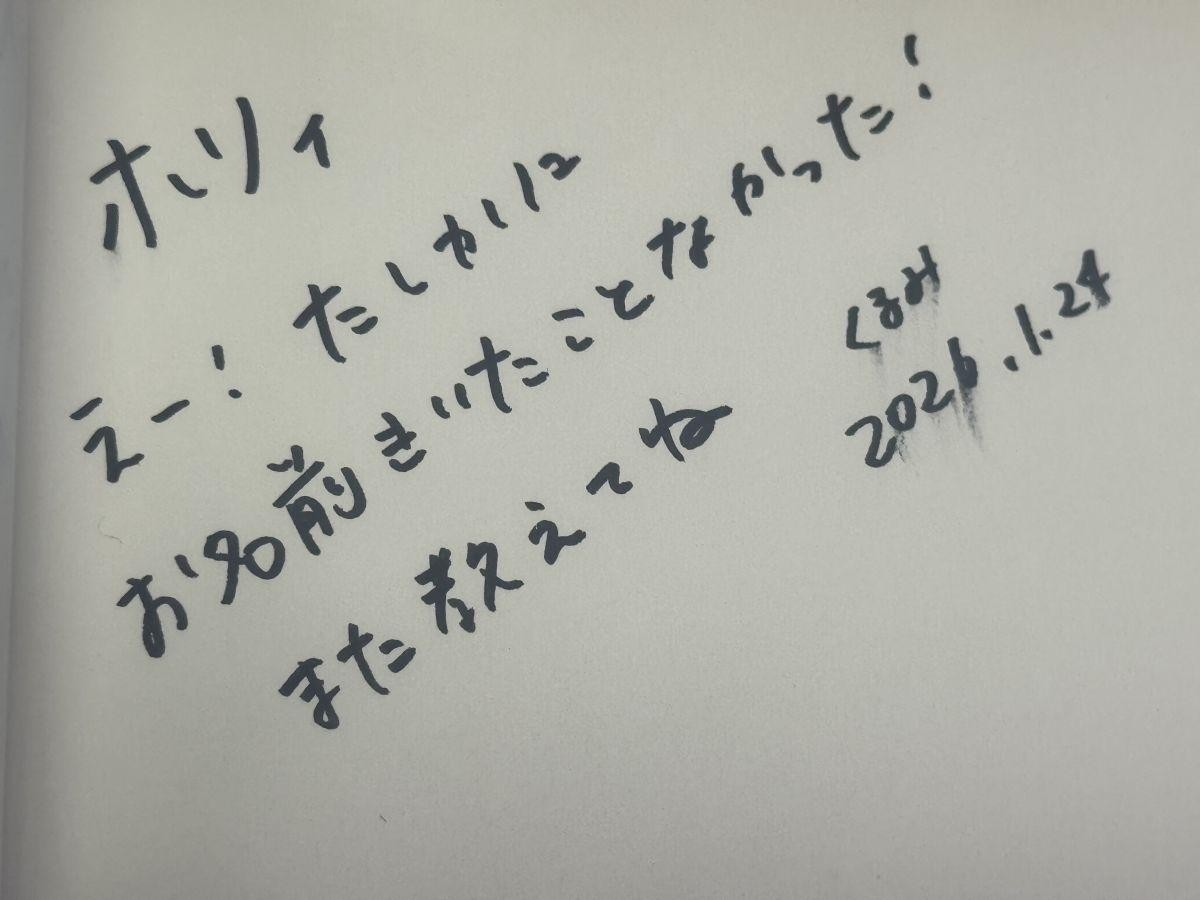 ホリィ
えー！たしかに
お名前きいたことなかった！
また教えてね
くるみ
2026.1.24